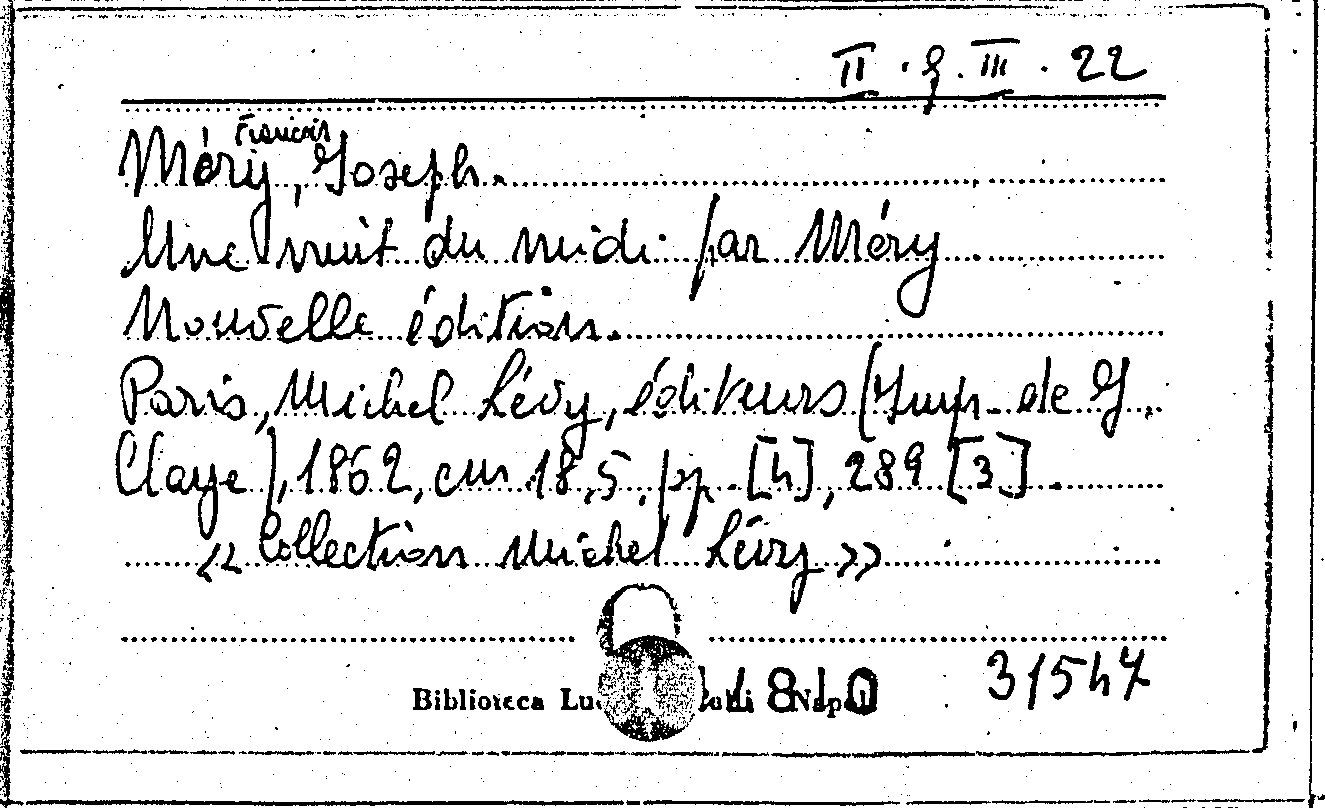 II . g . III . 22
François
Méry, Joseph.
Une nuit du midi par Méry
Nouvelle édition.
Paris, Michel Lévy, éditeurs (Imp. de J.
Claye), 1862, cm 18,5, pp. [4], 289 [3].
« Collection Michel Lévy »
31547
Biblioteca 1810